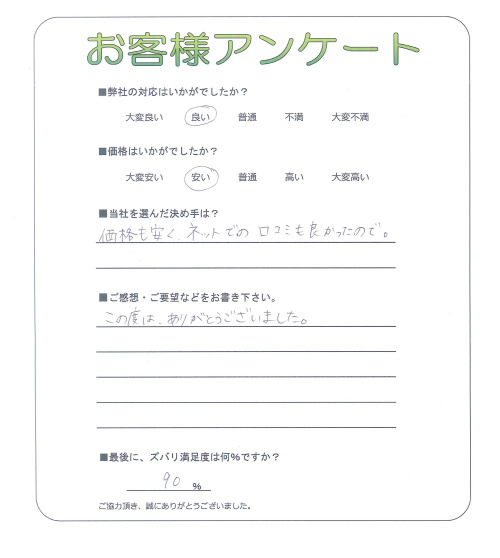 お客様アンケート
■弊社の対応はいかがでしたか？
大変良い 良い 普通 不満 大変不満
■価格はいかがでしたか？
大変安い 安い 普通 高い 大変高い
■当社を選んだ決め手は？
価格も安く、ネットでの口コミも良かったので。
■ご感想・ご要望などをお書き下さい。
この度は、ありがとうございました。
■最後に、ズバリ満足度は何％ですか？
90 ％
ご協力頂き、誠にありがとうございました。